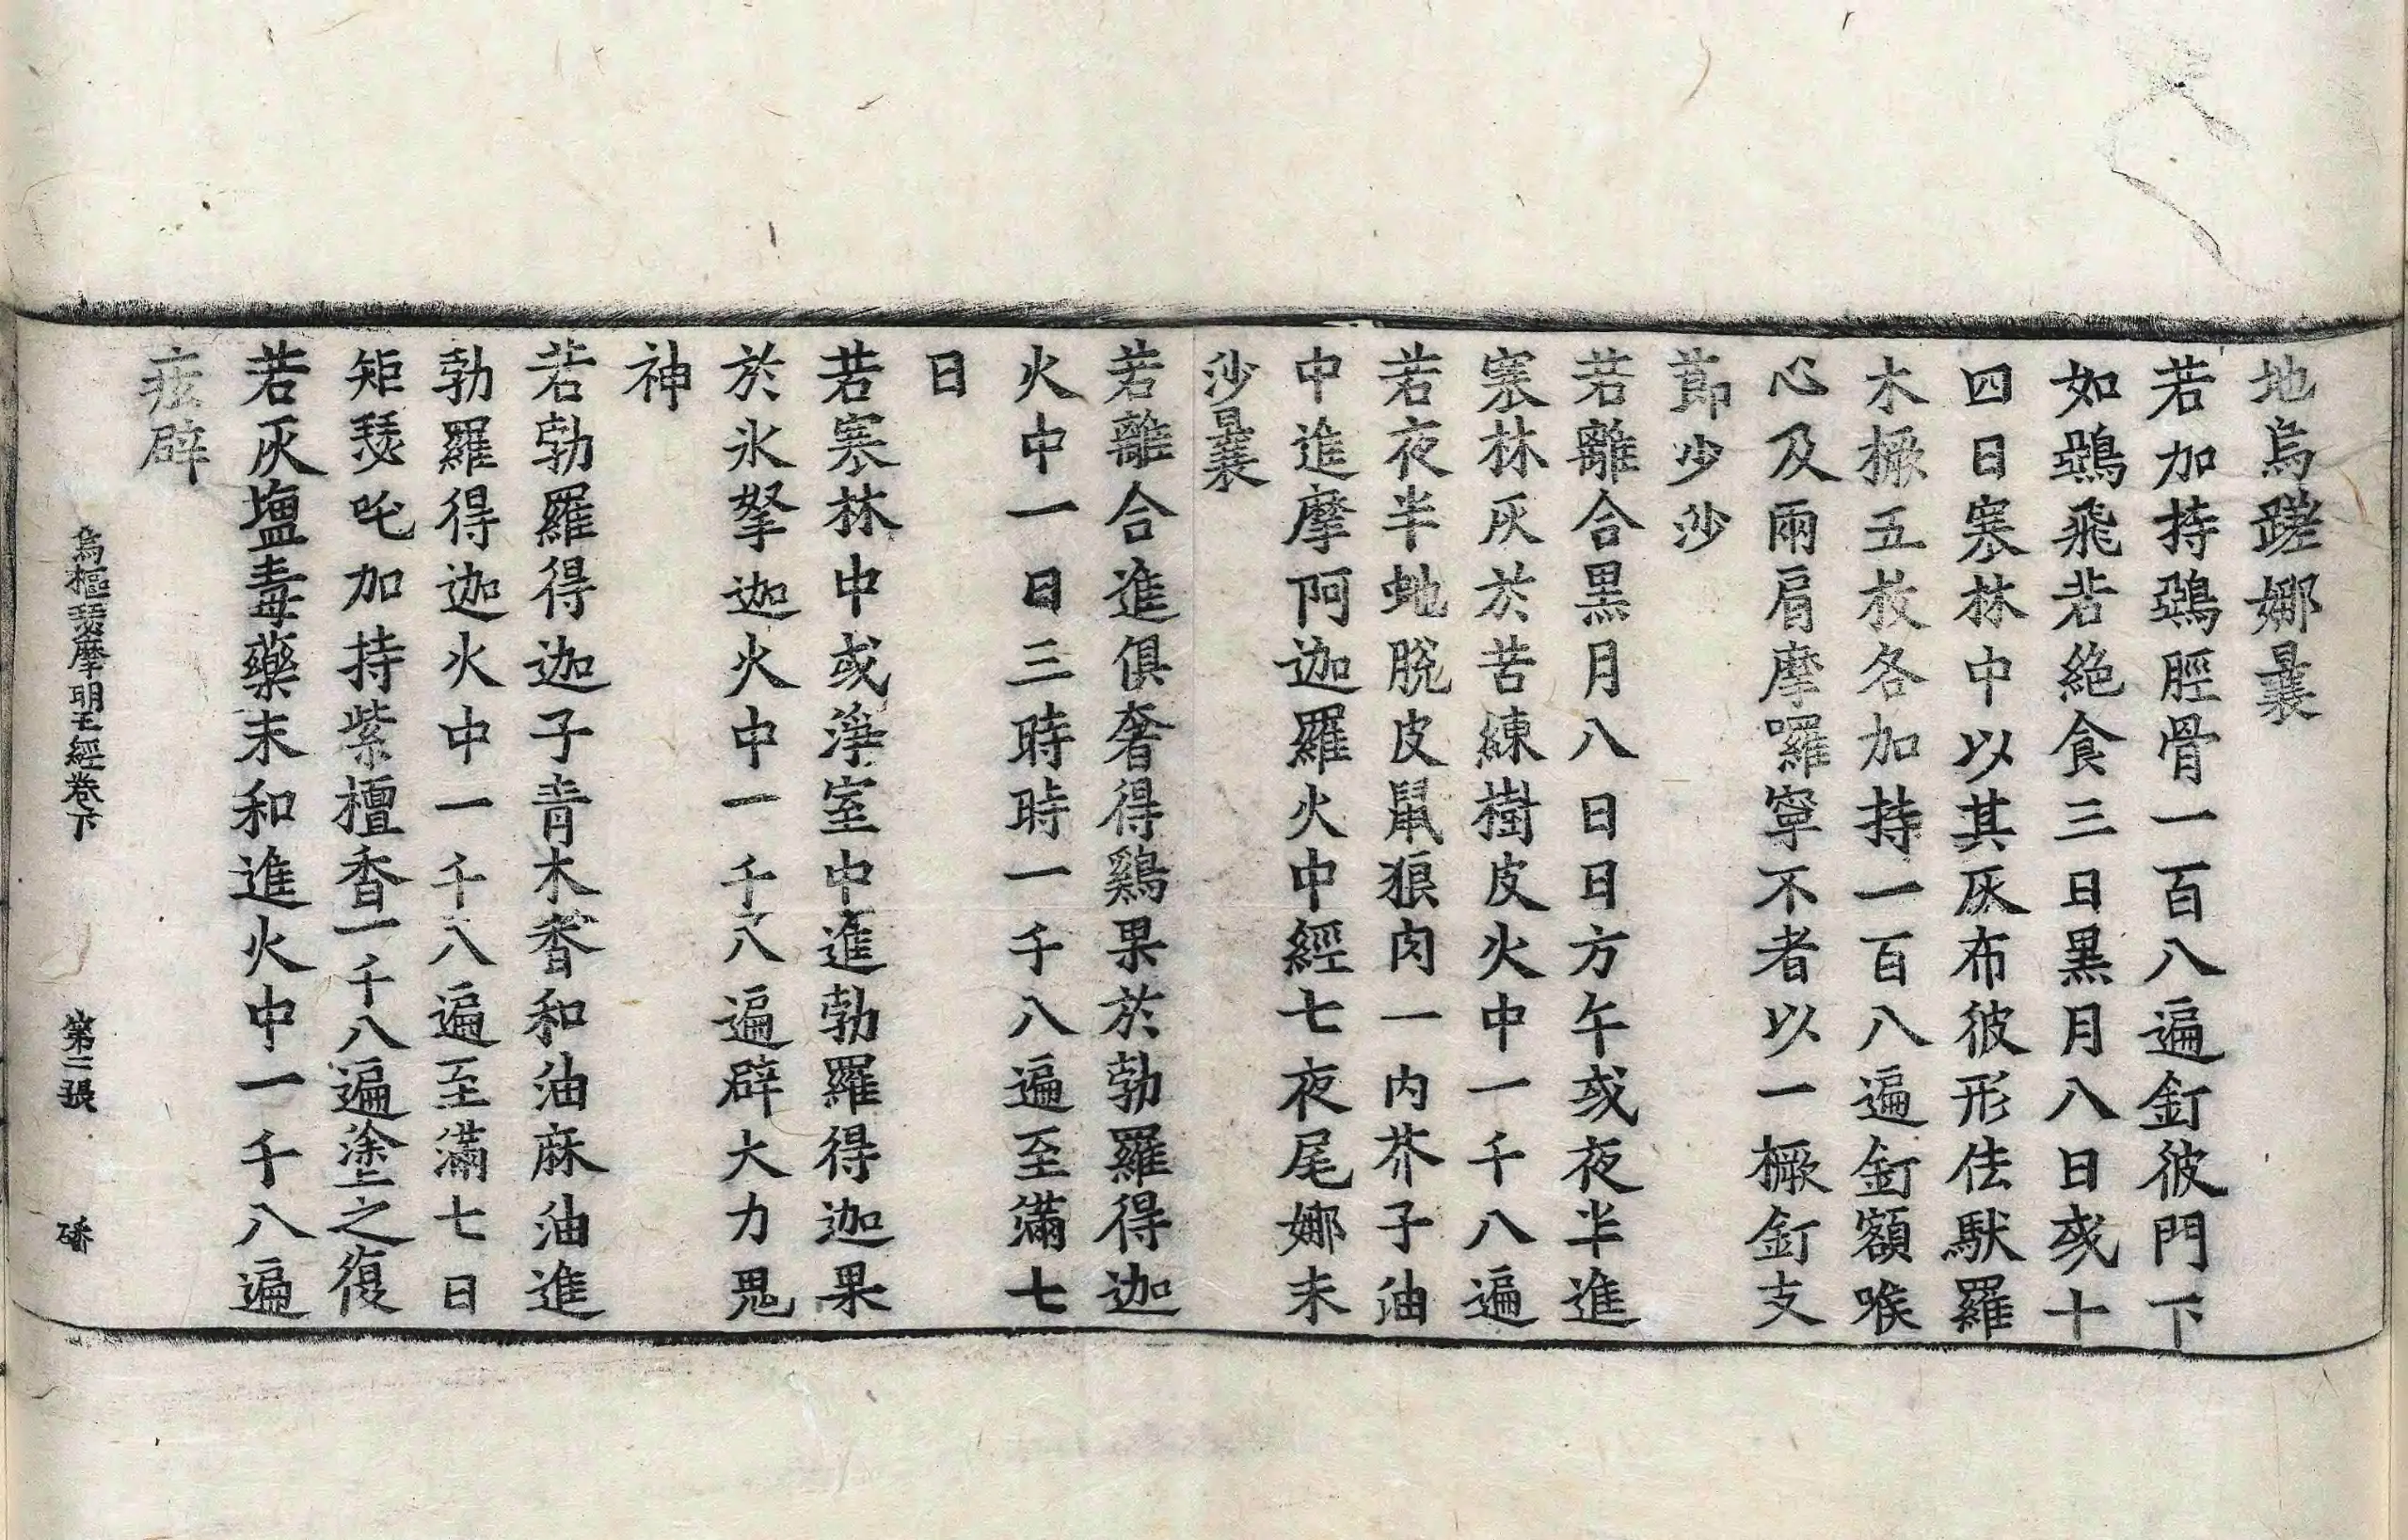 地烏蹉娜曩
若加持鵶脛骨一百八遍釘彼門下
如鵶飛若絶食三日黒月八日或十
四日寒林中以其灰布彼形佉馱羅
木橛五枚各加持一百八遍釘額喉
心及兩肩摩囉寧不者以一橛釘支
莭少沙
若離合黒月八日日方午或夜半進
寒林灰於苦練樹皮火中一千八遍
若夜半虵脫皮鼠狼肉一內芥子油
中進摩阿迦羅火中經七夜尾娜末
沙曩
若離合進俱奢得鷄果於勃羅得迦
火中一日三時時一千八遍至滿七
日
若寒林中或淨室中進勃羅得迦果
於氷拏迦火中一千八遍辟大力鬼
神
若勃羅得迦子青木香和油麻油進
勃羅得迦火中一千八遍至滿七日
矩瑟吒加持紫檀香一千八遍塗之復
若灰塩毒藥末和進火中一千八遍
痃辟
烏樞瑟摩明王經卷下 第三張 磻